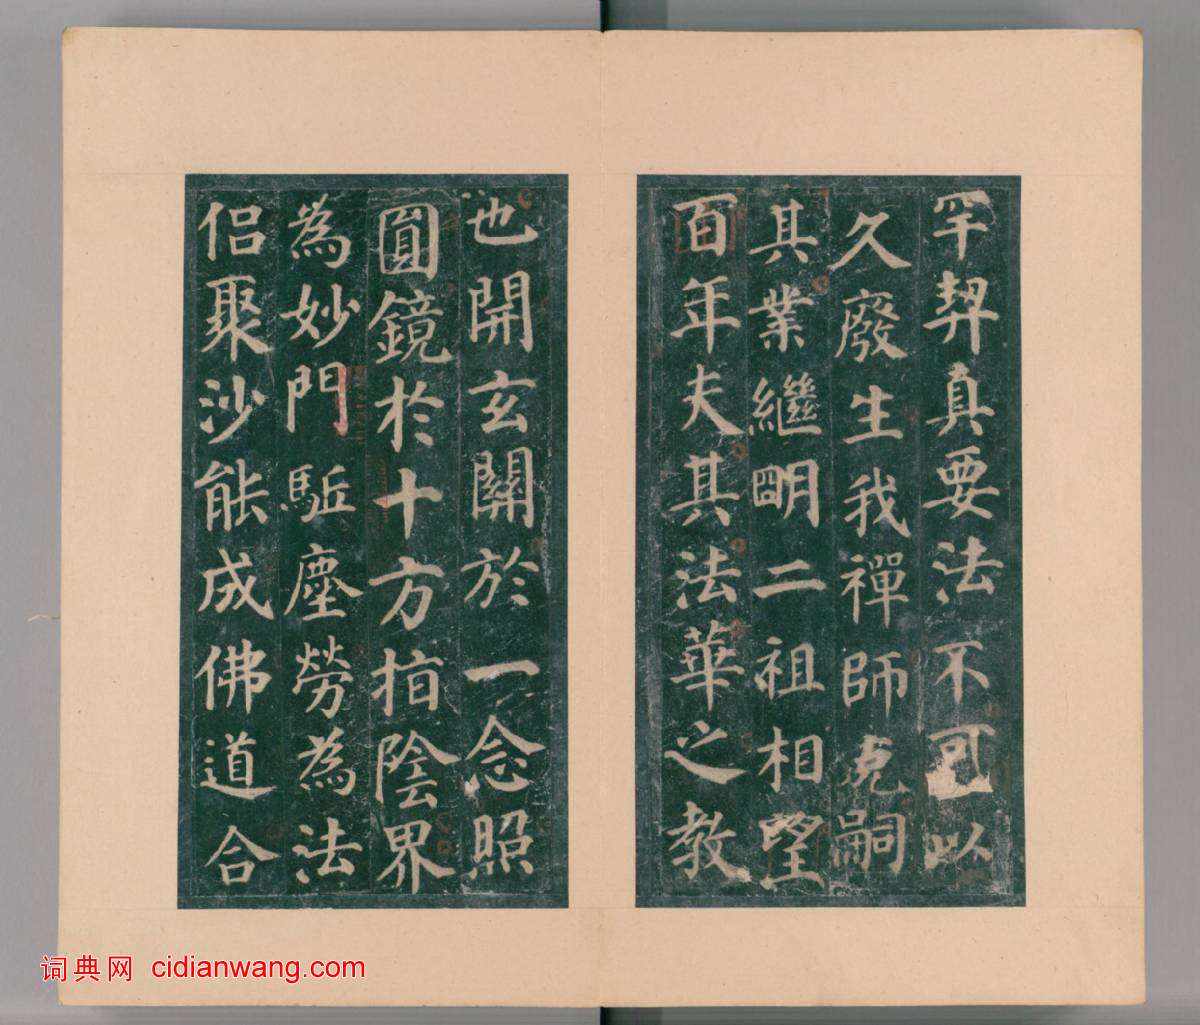 罕契真要法不可以
久廢生我禪師克嗣
其業繼明二祖相望
百年夫其法華之教
也開玄關於一念照
圓鏡於十方指陰界
為妙門駈塵勞為法
侶聚沙能成佛道合
词典网 cidianwang.com